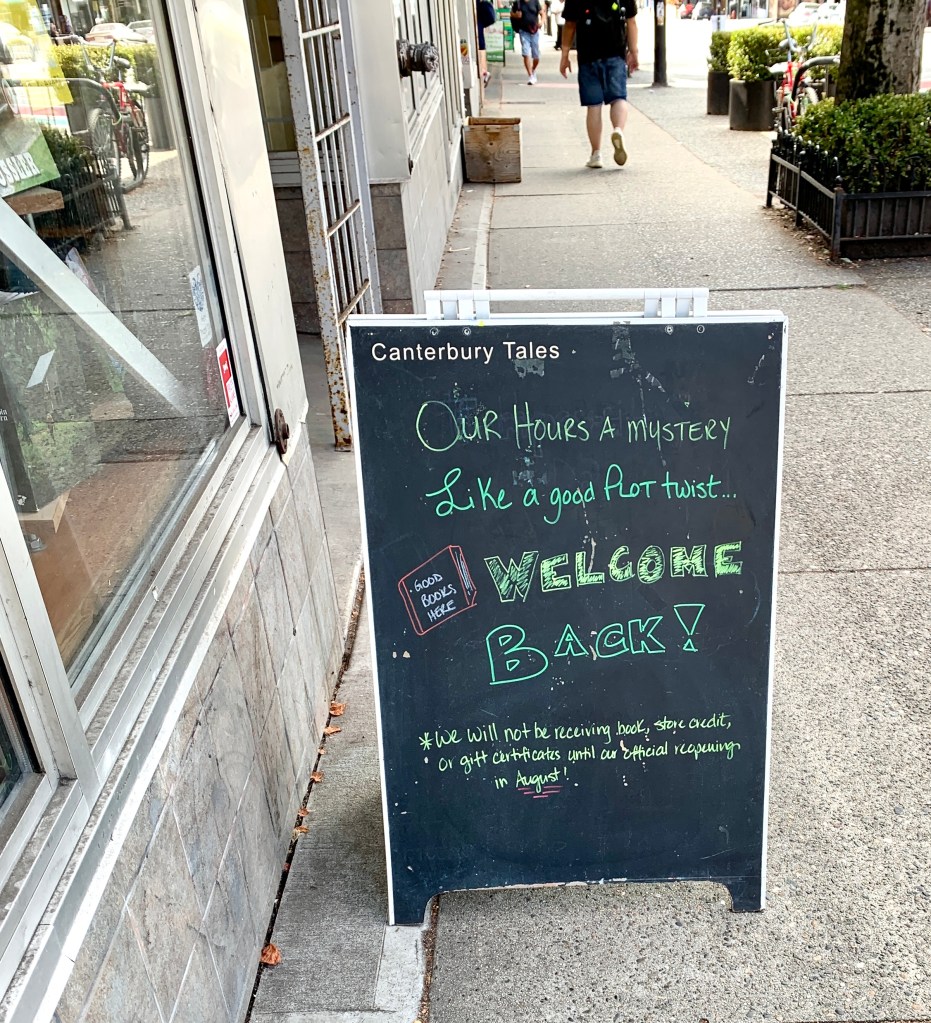 Canterbury Tales
OUR HOURS A MYSTERY
Like a good PLOT twist...
GOOD
BOOKS
HERE
WELCOME
BACK!
*We will not be receiving book, store credit,
or gift certificates until our official reopening
in August!